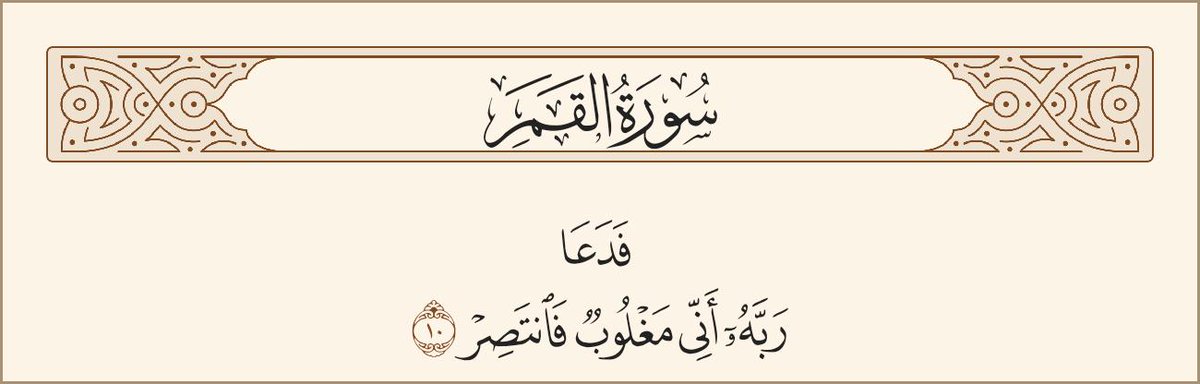 سُورَةُ القَمَرِ
فَدَعَا
رَبَّهُۥٓ أَنِّي مَغۡلُوبٞ فَٱنتَصِرۡ ١٠